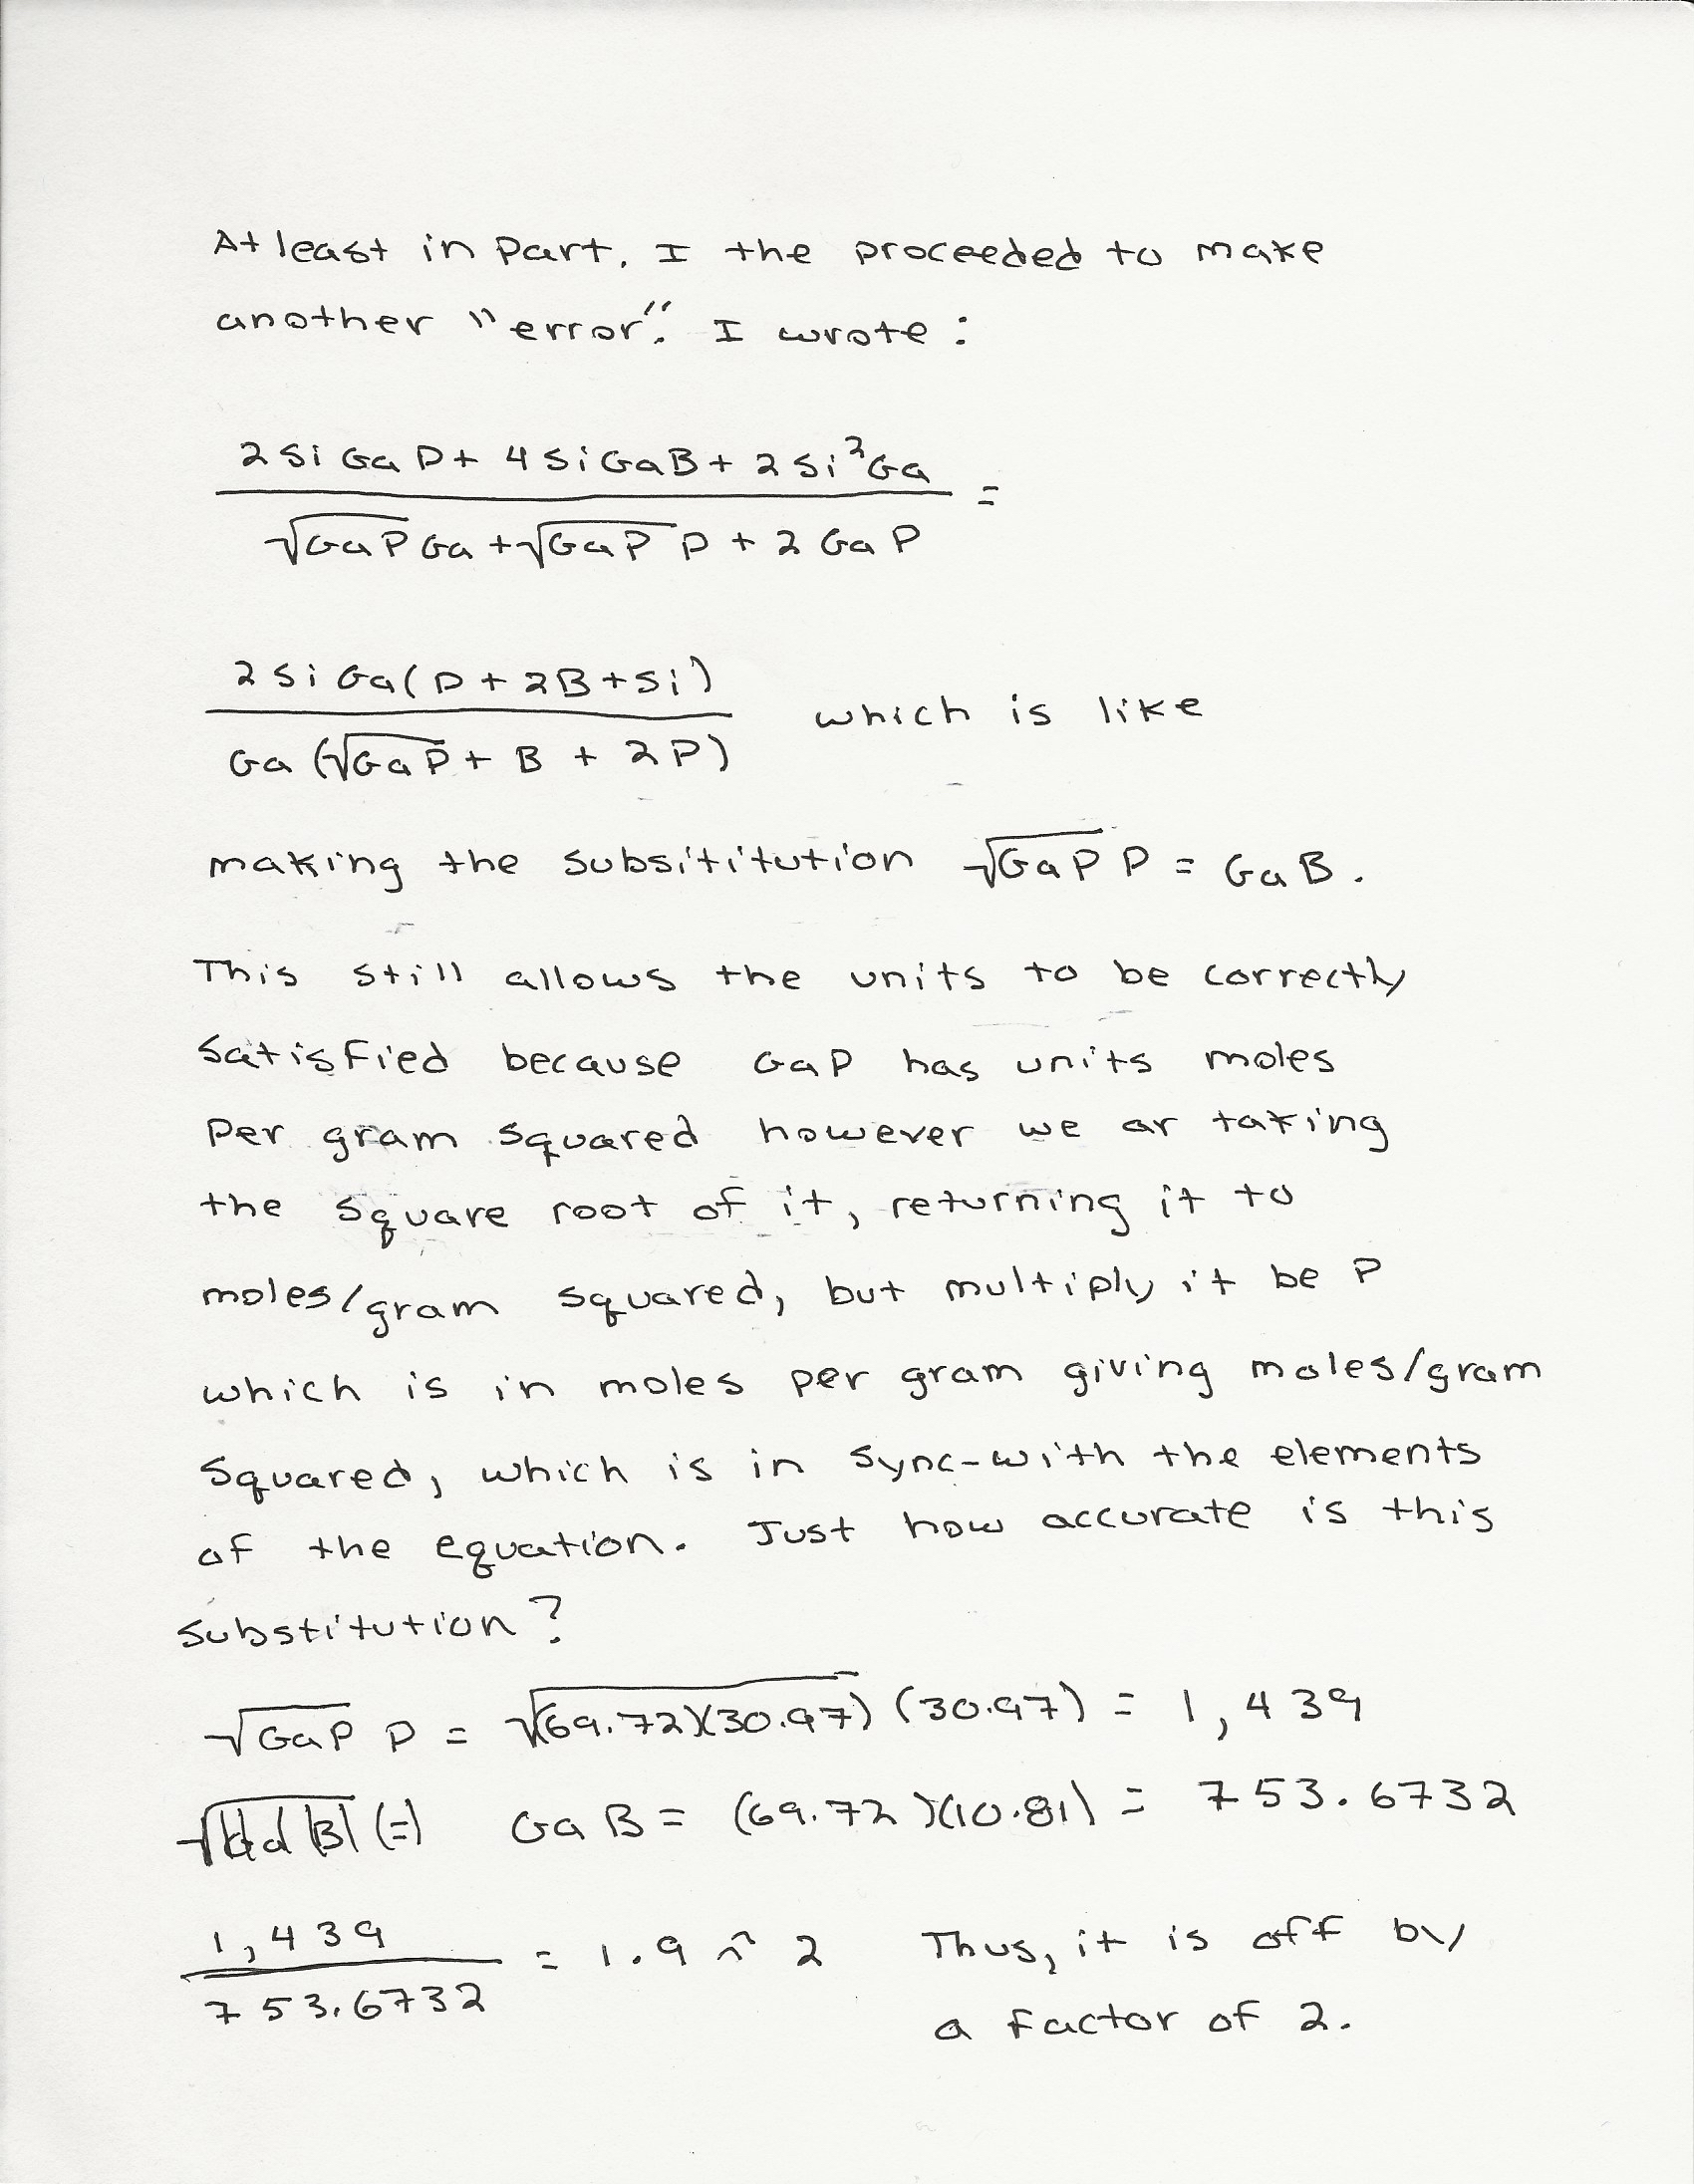 At least in part. I the proceeded to make
another "error". I wrote:
2SiGaP + 4SiGaB + 2Si²Ga
=
√GaP Ga + √GaP P + 2GaP
2SiGa(P + 2B + Si)
which is like
Ga(√GaP + B + 2P)
making the subsititution √GaP P = GaB.
This still allows the units to be correctly
satisfied because GaP has units moles
per gram squared however we ar taking
the square root of it, returning it to
moles/gram squared, but multiply it be P
which is in moles per gram giving moles/gram
squared, which is in sync-with the elements
of the equation. Just how accurate is this
substitution?
√GaP P = √(69.72)(30.97) (30.97) = 1,439
(=) GaB = (69.72)(10.81) = 753.6732
1,439
= 1.9 ~ 2 Thus, it is off by
753.6732
a factor of 2.